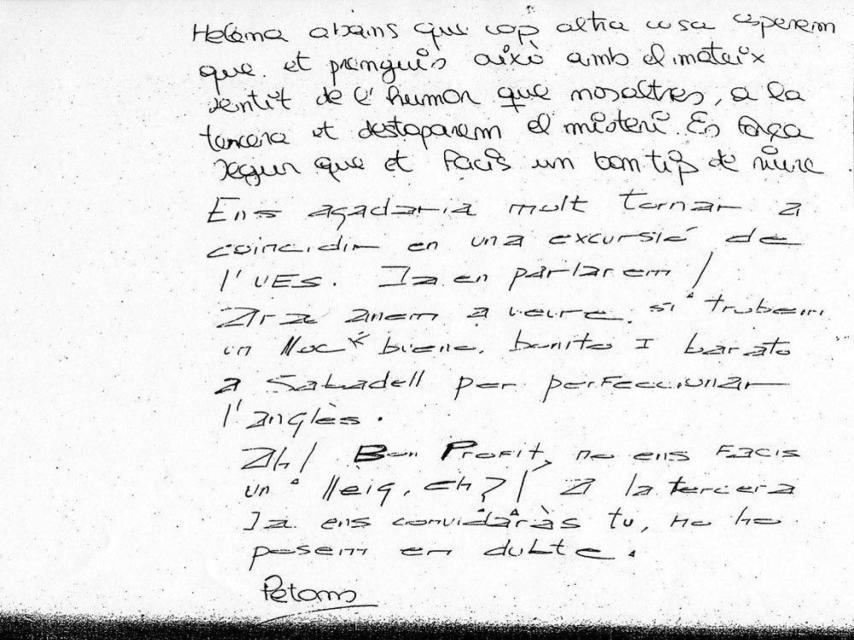 Helena abans que cap altra cosa esperem
que et prenguis això amb el mateix
sentit de l'humor que nosaltres, a la
tercera et destaparem el misteri. Es força
segur que et facis un bon tip de riure
Ens agadaria molt tornar a
coincidir en una excursió de
l'UES. Ja en parlarem!
Ara anem a veure si trobem
un lloc bueno, bonito I barato
a Sabadell per perfeccionar
l'anglès.
Ah! Bon Profit, no ens facis
un lleig, eh?! A la tercera
Ja ens convidaràs tu, no ho
posem en dubte.
Petons